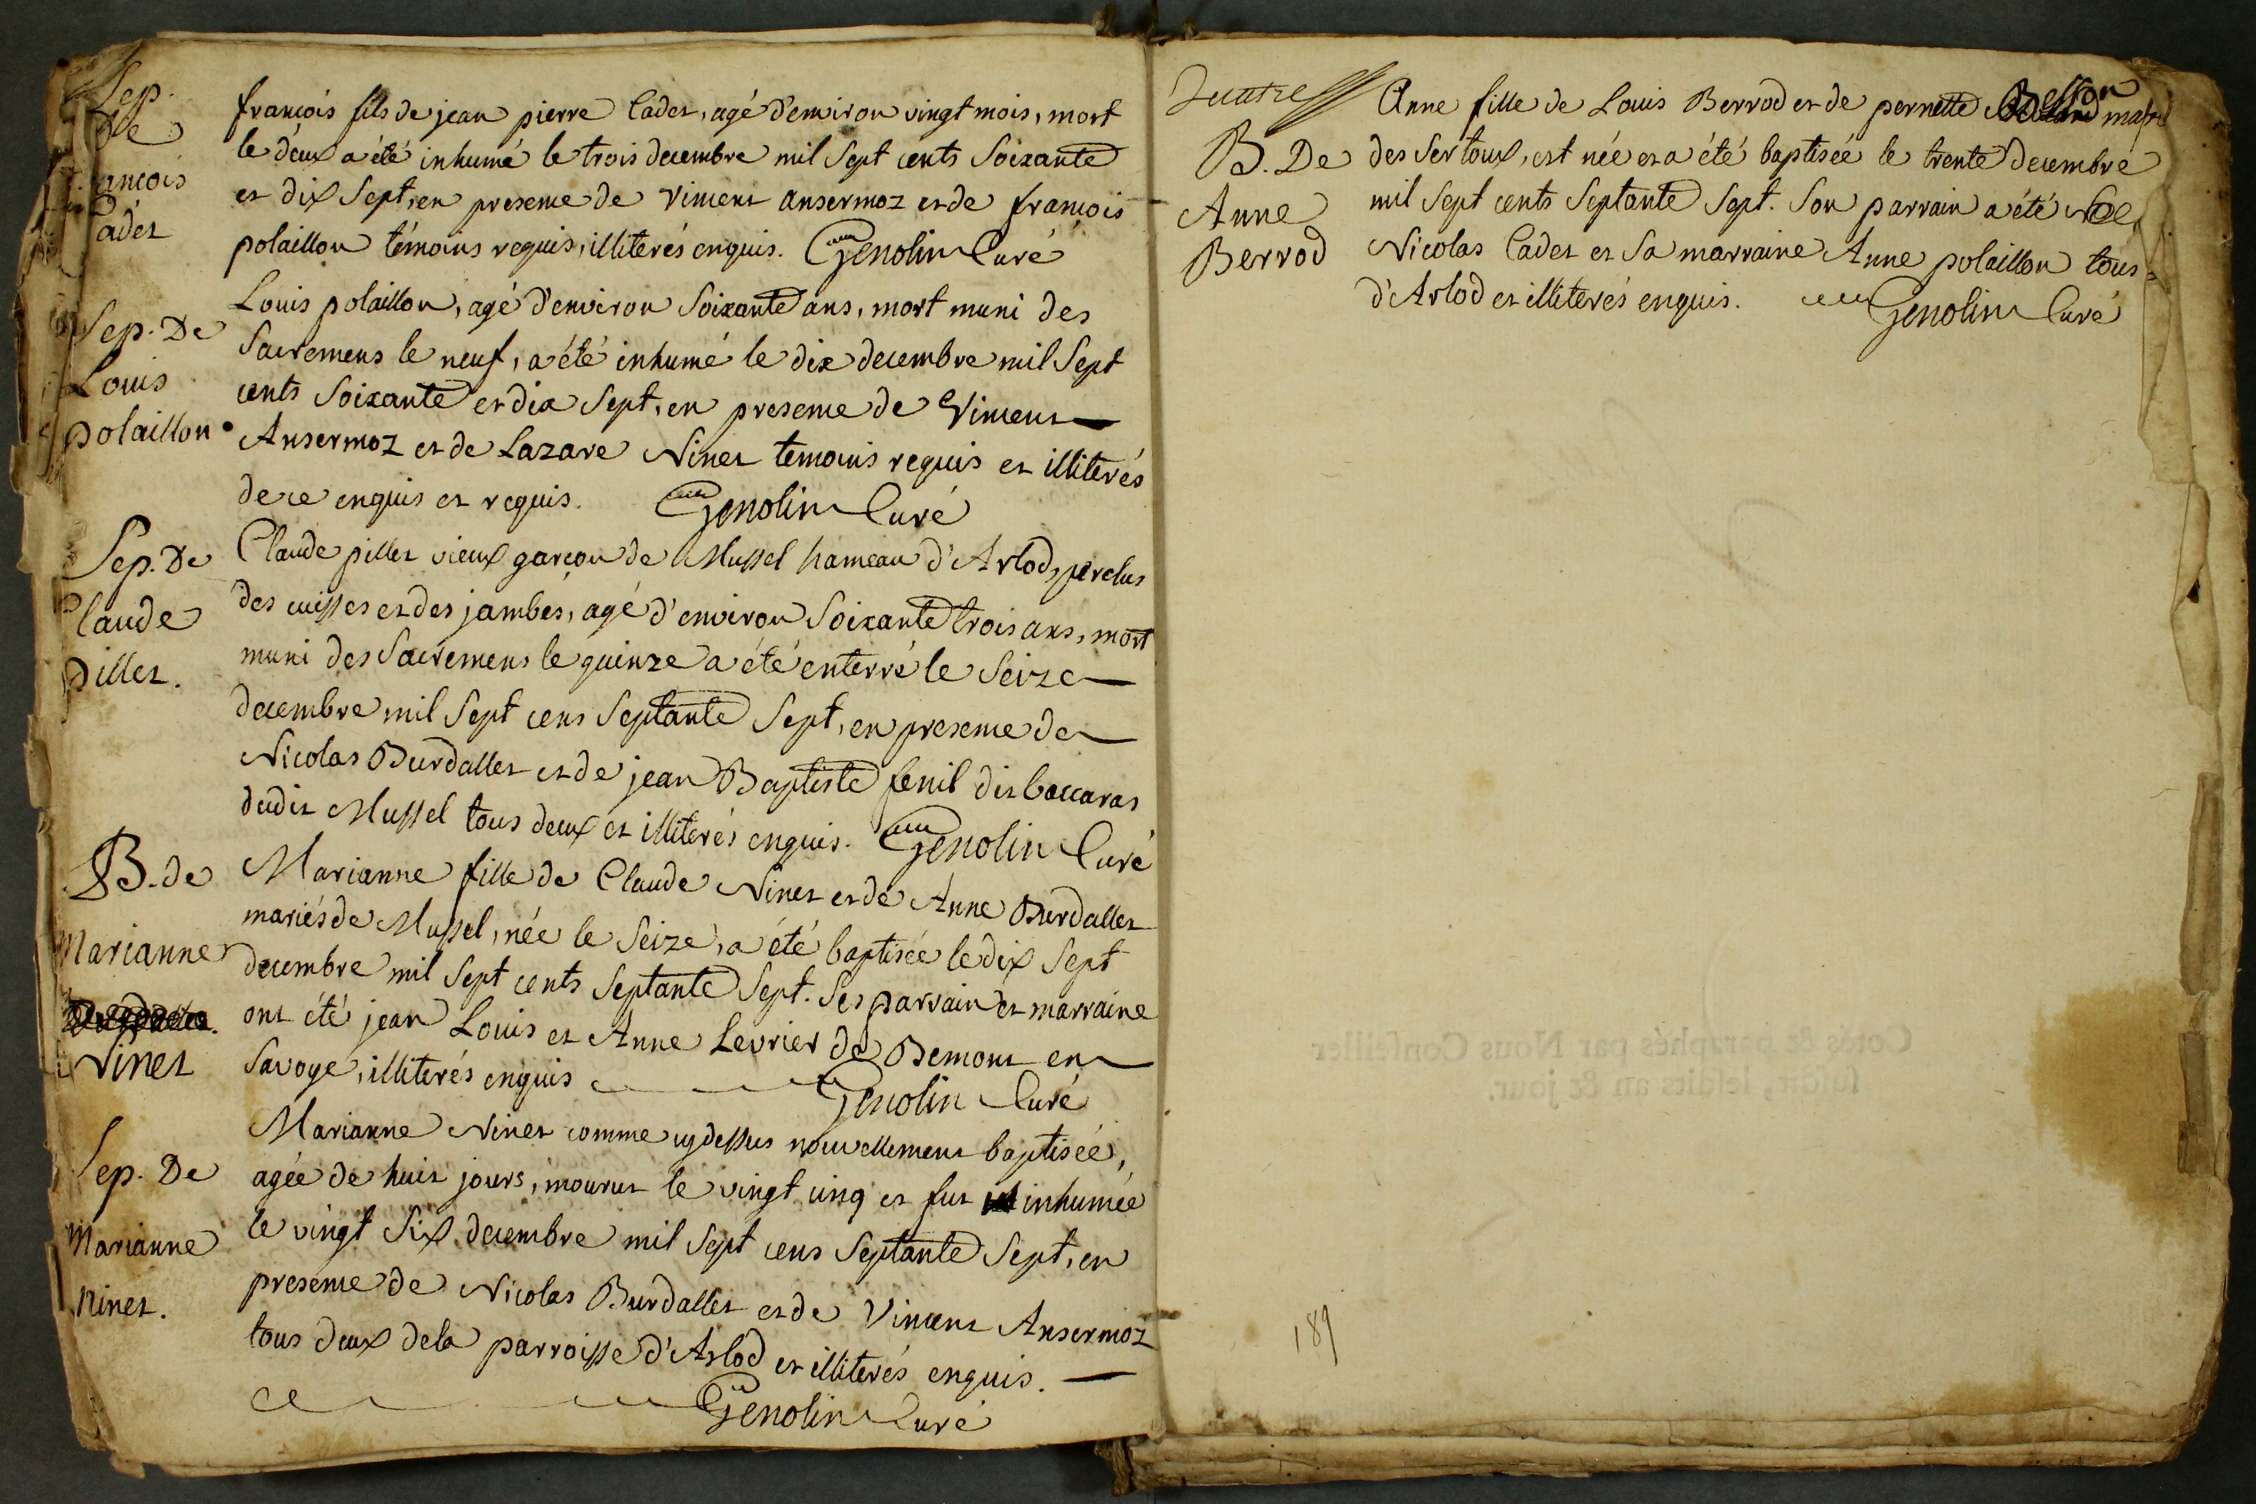 Sep.
De
françois
Cadet
françois fils de jean pierre Cadet, agé d'environ vingt mois, mort
le deux a été inhumé le trois decembre mil Sept cents Soixante
et dix Sept, en presence de Vincent ansermoz et de françois
polaillon témoins requis, illiterés enquis. Genolin Curé
Sep. De
Louis
polaillon
Louis polaillon, agé d'environ Soixante ans, mort muni des
Sacremens le neuf, a été inhumé le dix decembre mil Sept
cents Soixante et dix Sept, en presence de Vincent
Ansermoz et de Lazare Ninet temoins requis et illiterés
de ce enquis et requis. Genolin Curé
Sep. De
Claude
pillet.
Claude pillet vieux garçon de Mussel hameau d'Arlod, perclus
des cuisses et des jambes, agé d'environ Soixante trois ans, mort
muni des Sacremens le quinze a été enterré le Seize
decembre mil Sept cens Septante Sept, en presence de
Nicolas Burdallet et de jean Baptiste fenil dit baccaras
dudit Mussel tous deux et illiterés enquis. Genolin Curé
B. de
Marianne
Ninet
Marianne fille de Claude Ninet et de Anne Burdallet
mariés de Mussel, née le Seize, a été baptisée le dix Sept
decembre mil Sept cents Septante Sept. Ses parrain et marraine
ont été jean Louis et Anne Levrier de Bemont en
Savoye, illiterés enquis Genolin Curé
Sep. De
Marianne
ninet.
Marianne Ninet comme cydessus nouvellement baptisée,
agée de huit jours, mourut le vingt cinq et fut inhumée
le vingt Six decembre mil Sept cens Septante Sept, en
presence de Nicolas Burdallet et de Vincent Ansermoz
tous deux de la parroisse d'Arlod et illiterés enquis.
Genolin Curé
quatre
B. De
Anne
Berrod
Anne fille de Louis Berrod et de pernette Besson
des Sertoux, est née et a été baptisée le trente decembre
mil Sept cents Septante Sept. Son parrain a été
Nicolas Cadet et Sa marraine Anne polaillon tous
d'Arlod et illiterés enquis. Genolin Curé
Cotés & paraphés par Nous Conseiller
susdit, lesdits an & jour.
189